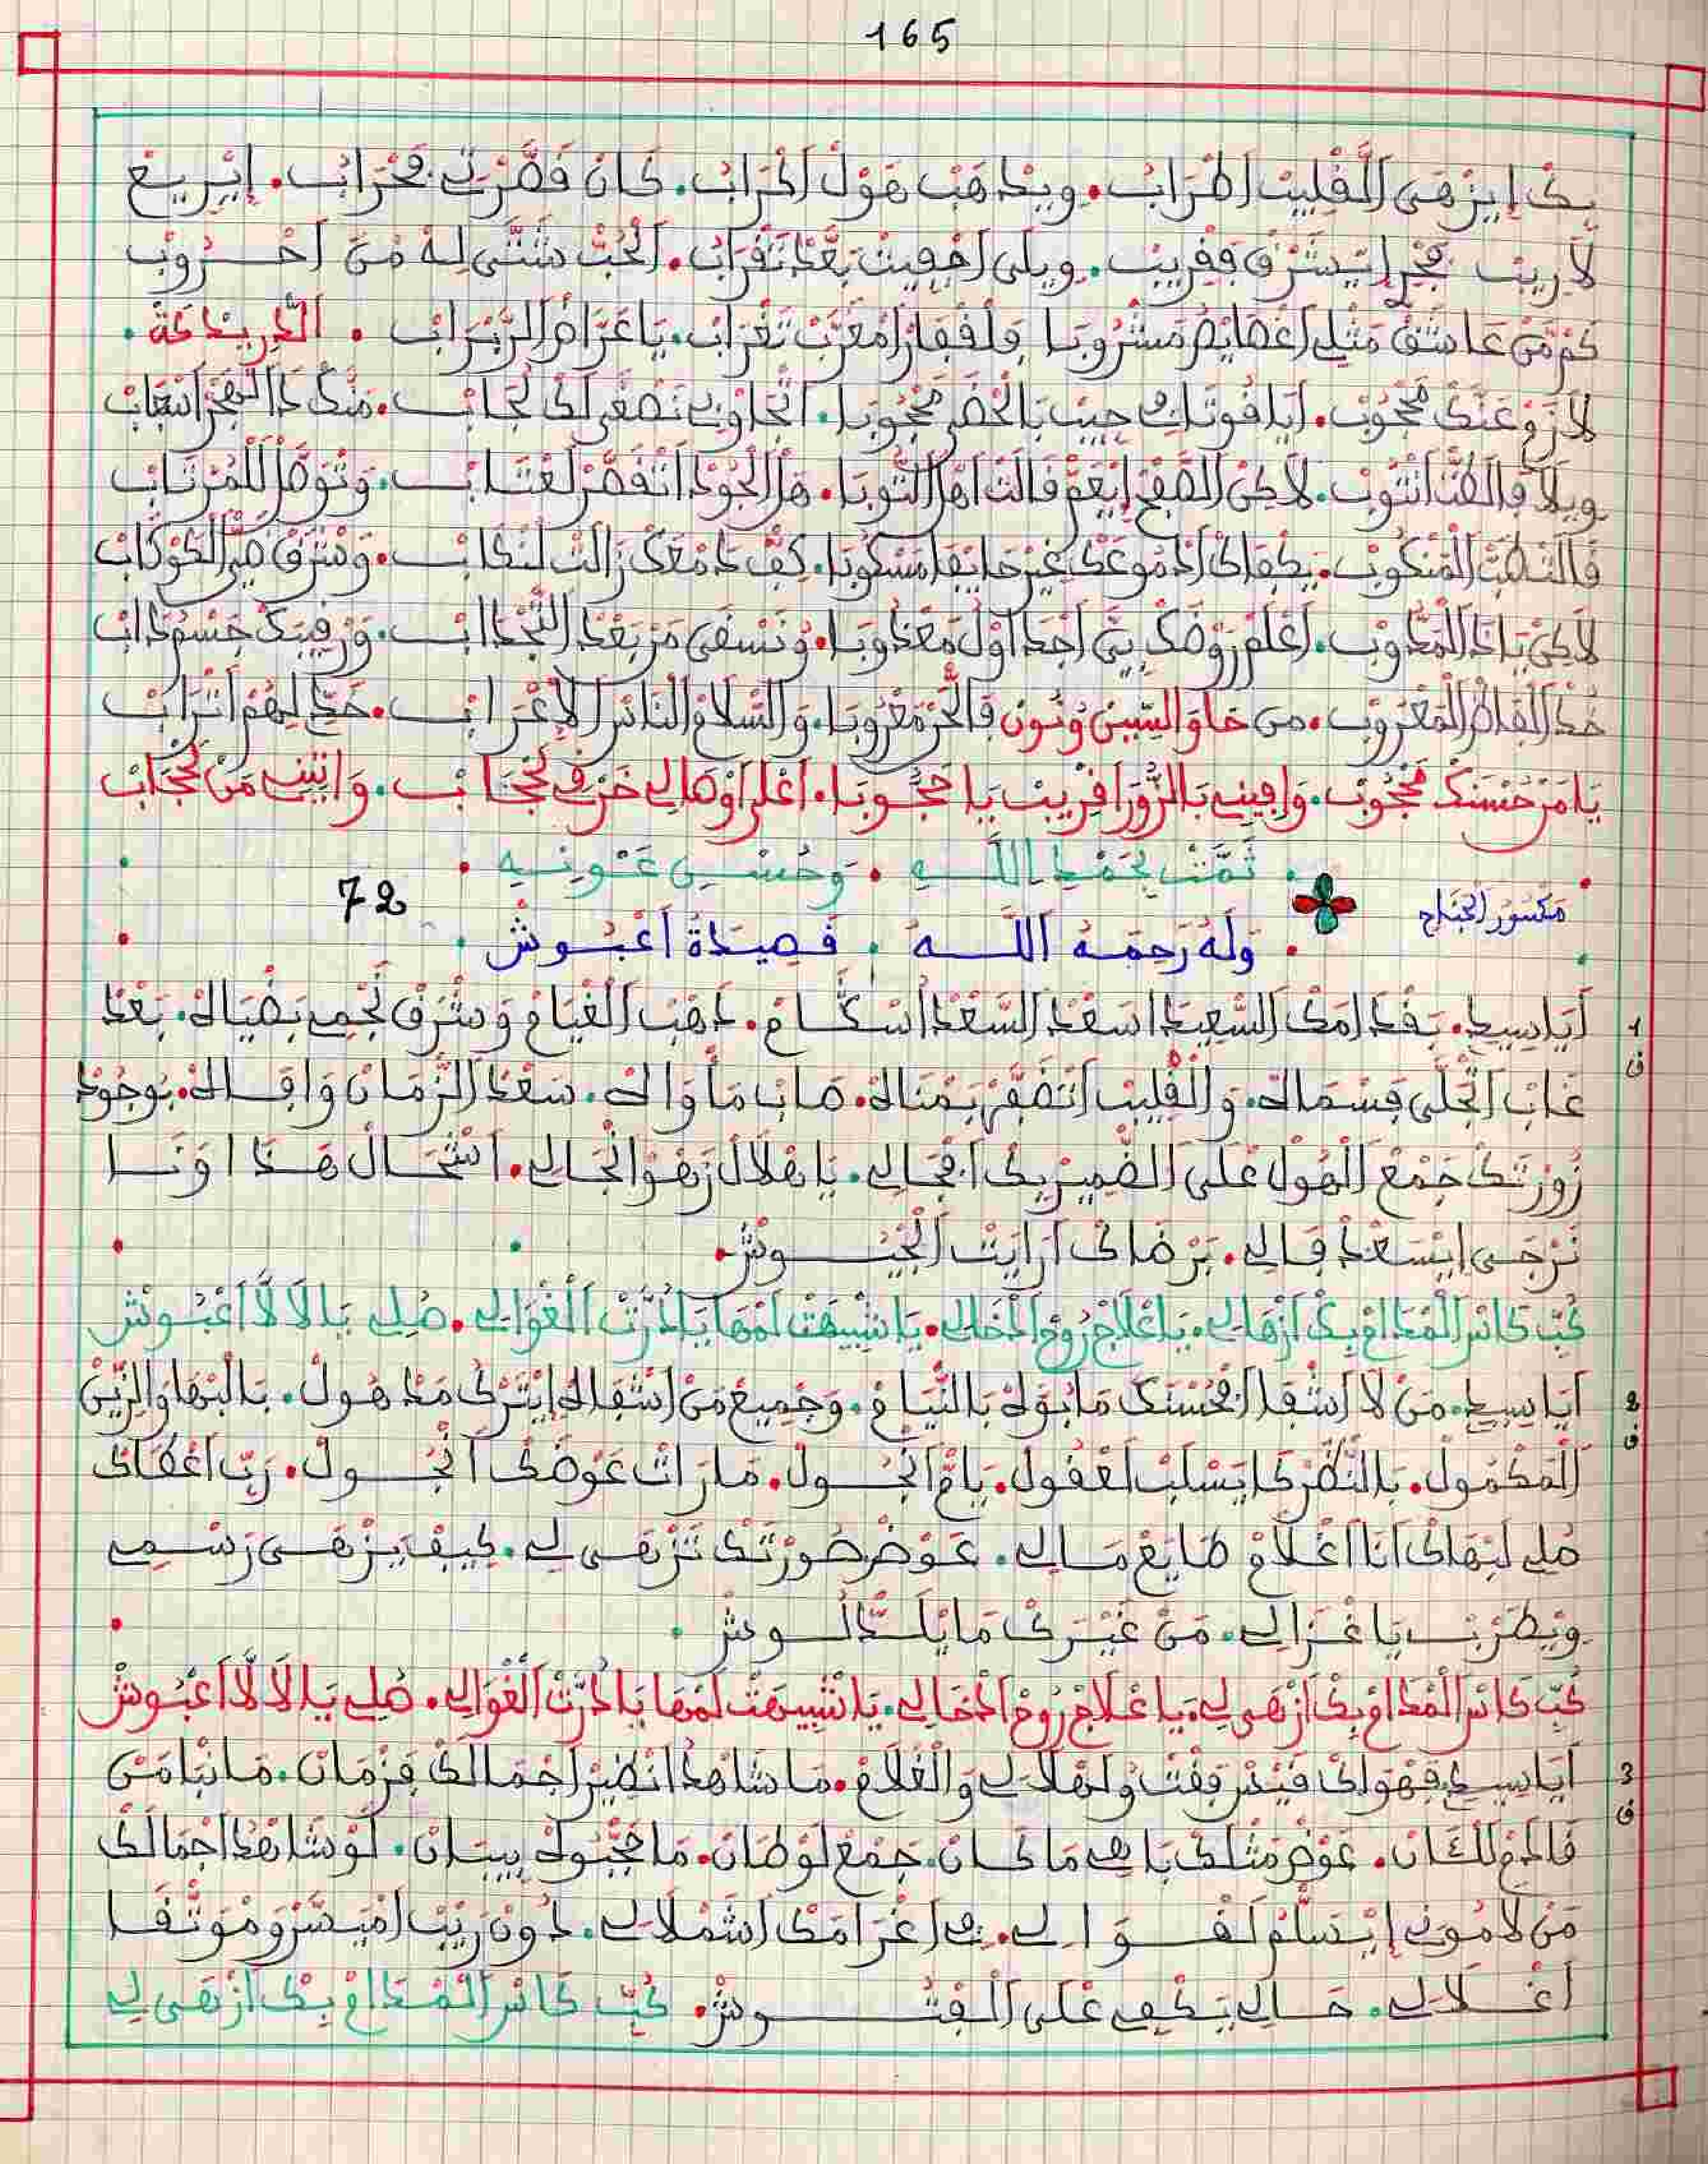 165
بك ايزهى القليب اطراب. ويذهب هول اكراب. كان قصرتي فحراب. ايريع
لا ريب فجر ايشرق فقريب. ويلى اخفيت بعد تقراب. الحب شتى له من احروب
كم من عاشق مثلي اعضايه مشروبا ولفقار امغرب تغراب. يا غراض الربراب . الدريدكة .
لا تزو عنك محجوب. ايا قوتك حبيب بالخضر محجوبا. اتحاوني نصغى لك لجاب. منك ذا الهجر اسباب
ويلا فالظن انتوب. لاكن الصفح ايعم قالت اهل التوبا. هل الجود اتقصر لعتاب. وتوصل للمرتاب
فالنصب المنكوب. بكفاك ادموعك غير حايفا مسكوبا. كف دمعك زالت لنكاب. وشرق ضي الكوكاب
لاكن ياذا المدوب. اعلم روضك بين اجداول معدوبا. وتسقى من بعد التجداب. ورقيبك جسمه داب
خذ الفاظ المعروب. من حا و السين ونون فالحر معروبا. والسلام الناس الاعراب. خد ليهم اتراب
يا من حسنك محجوب. وافيني بالزور اقريب يا محجوبا. اعلى اوهالي خرق لحجاب. واتيني من لحجاب
. تمت بحمد الله . وحسن عونه .
مكسور الجناح
72
. وله رحمه الله . قصيدة اعبوش .
1 ايا سيدي. بقد امك السعيد اسعد السعد اسكام. ذهب الغيام وشرق نجمي بضياله. بعد
ف غاب اتجلى فسماله. والقليب اتضفر بمناله. صاب ماواله. سعد الزمان واقباله. بوجود
زورتك جمع الهول على الضمير بك افجالي. يا هلال زهو انجالي. اشحال هذا اونا
نرجى ايسعد فالي. برضاك ارايت الجيوش.
كب كاس المدام بك ازهالي. يا علاج روح الدخالي. يا شبيهت لمها يا درت الغوالي. صلي يا لالا اعبوش
2 ايا سيدي. من لا اشقا افحسنك ما بوه بالنيام. وجميع من اشقاله ايترك مذهول. بالبها والزين
ف المكمول. بالنظر كا يسلب لعقول. يام انجول. ما رات عوضك انجول. رب اعطاك
صلي لبهاك انا اغلام طايع مالي. عوض صورتك تزهى لي. كيف يزهى رسمي
ويطرب يا غزالي. من غيرك ما يلد لوش .
كب كاس المدام بك ازهى لي. يا علاج روح الدخالي. يا شبيهت لمها يا درت الغوالي. صلي يا لالا اعبوش
3 ايا سيدي فهواك قيس وقفت ولهلالي والغلام. ما شاهد انظير اجمالك فزمان. ما نبا من
ف عوض مثلك يا هي ما كان. جمع لوطان. ما جبوله بيبان. لو شاهد اجمالك
من لاموني ايسلم لقوالي. في اغرامك اشملالي. دون ريب اميسر وموثقا
اغلالي. حالي يكفي على الفتوش. كب كاس المدام بك ازهى لي